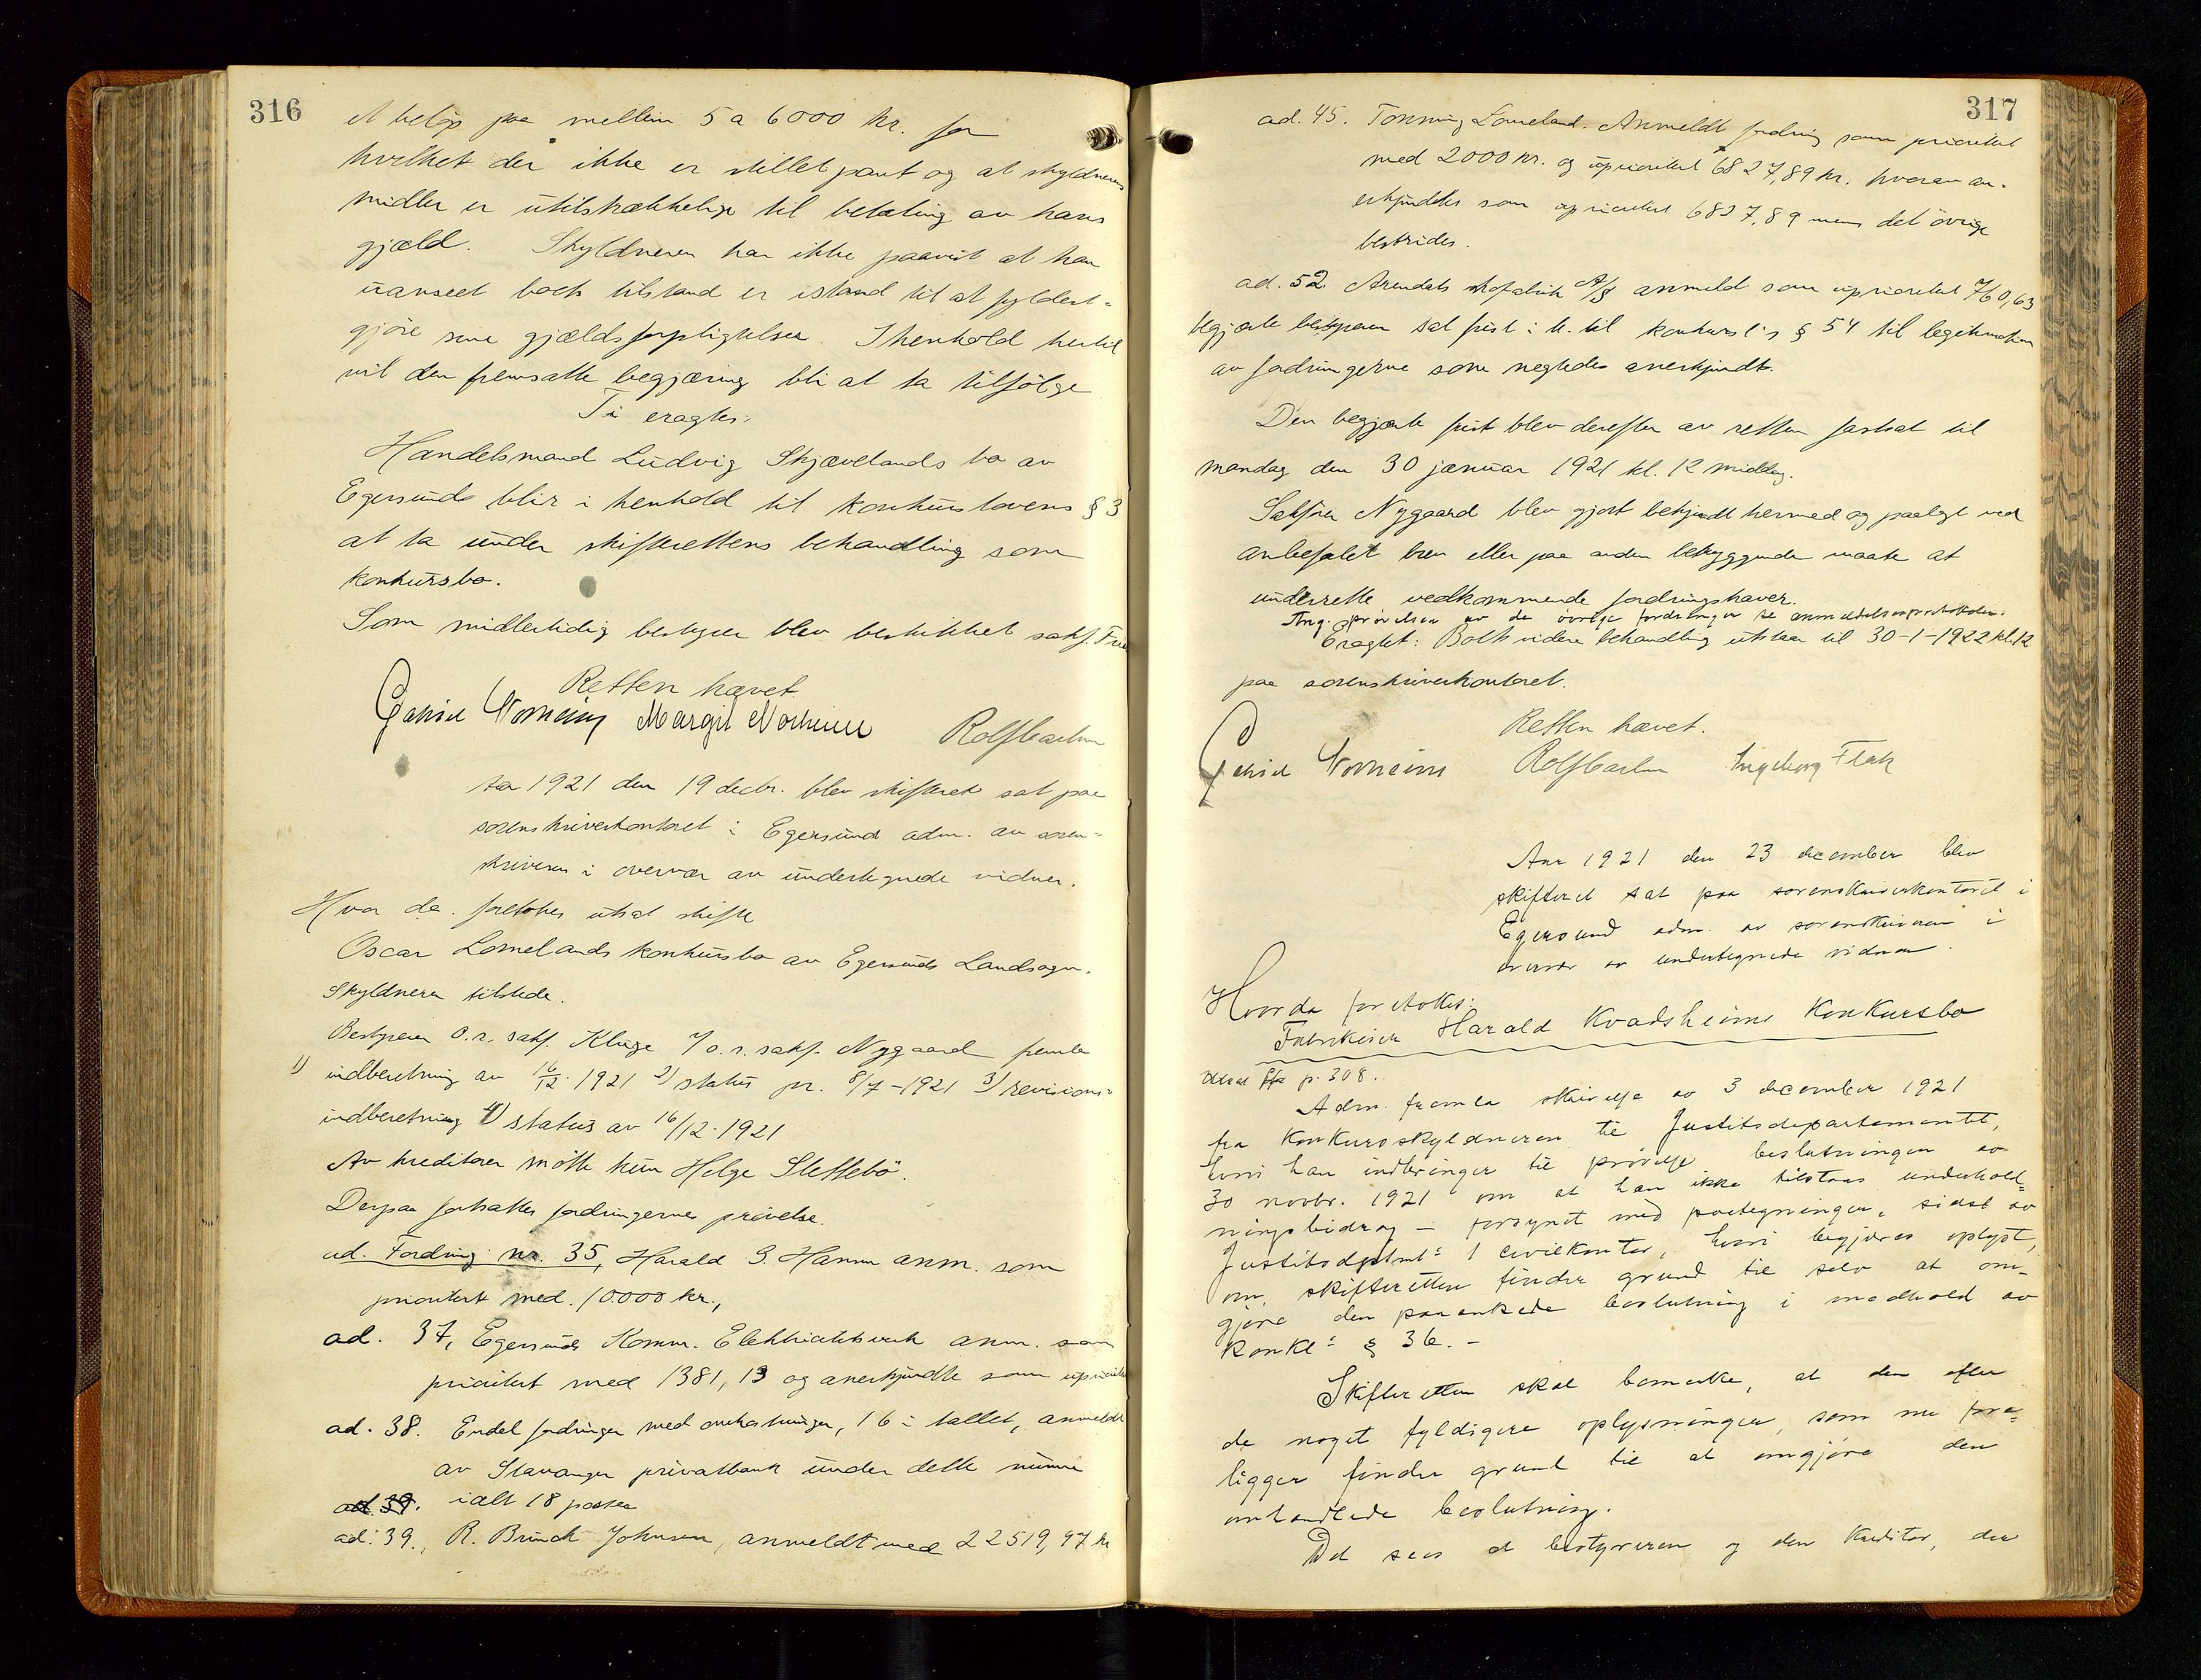 316
et beløp paa mellem 5 a 6000 kr. for
hvilket der ikke er stillet pant og at skyldnerens
midler er utilstrækkelige til betaling av hans
gjæld. Skyldneren har ikke paavist at han
uanseet boets tilstand er istand til at fyldest-
gjøre sine gjældsforpligtelser. I henhold hertil
vil den fremsatte begjæring bli at ta tilfølge
Ti eragtes:
Handelsmand Ludvig Skjævelands bo av
Egersund blir i henhold til konkurslovens § 3
at ta under skifterettens behandling som
konkursbo.
Som midlertidig bestyrer blev beskikket sakf.
Retten hævet.
Margit
Aar 1921 den 19 decbr. blev skifteret sat paa
sorenskriverkontoret i Egersund adm. av soren-
skriveren i overvær av undertegnede vidner.
Hvor da foretokes utsat skifte
Oscar Lomelands konkursbo av Egersunds Landsogn.
Skyldneren tilstede.
Bestyreren o.r. sakf. Kluge v/ o.r. sakf. Nygaard fremla
1) indberetning av 16/12 1921 2) status pr. 8/7-1921 3) revisions-
indberetning 4) status av 16/12-1921
Av kreditorer møtte kun Helge Slettebö.
Derpaa fortsattes fordringernes prøvelse.
ad. Fordring nr. 35, Harald S. Hamre anm. som
prioritert med 10.000 kr.,
ad. 37, Egersunds Komm. Elektricitetsverk anm. som
prioritert med 1381,13 og anerkjendte som upriorit
ad. 38. Endel fordringer med omkostninger, 16 i tallet, anmeldt
av Stavanger privatbank under dette numer
ad. 39. ialt 18 poster
ad. 39., R. Bruch Johnsen, anmeldt med 22519,97 kr
317
ad. 45. Tonning Lomeland. Anmeldt fordring som prioritert
med 2000 kr. og uprioritert 6827,89 kr. hvorav an-
erkjendtes som uprioritert 6827,89 mens det øvrige
bestrides.
ad. 52. Arendals skofabrik A/S anmeldt som uprioritert 760,63
begjærte bestyreren sat frist i h. til konkursl's § 54 til legitimation
av fordringerne som negtedes anerkjendt.
Den begjærte frist blev derefter av retten fastsat til
mandag den 30 januar 1921 kl. 12 middag.
Sakfører Nygaard blev gjort bekjendt hermed og paalagt ved
anbefalet brev eller paa anden betryggende maate at
underrette vedkommende fordringshaver.
Ang. prøvelsen av de øvrige fordringer se anmeldelsesprotokollen.
Eragtet: Boets videre behandling utstaar til 30-1-1922 kl. 12
paa sorenskriverkontoret.
Retten hævet.
Ingeborg
Aar 1921 den 23 december blev
skifteret sat paa sorenskriverkontoret i
Egersund adm. av sorenskriveren i
overvær av undertegnede vidner.
Hvorda foretokes:
Fabrikeier Harald Kvadsheims Konkursbo
utsat fra p. 308.
Adm. fremla skrivelse av 3 december 1921
fra Konkursskyldneren til Justitsdepartementet,
hvori han indbringer til prøvelse beslutningen av
30 novbr. 1921 om at han ikke tilstaaes underhold-
ningsbidrag - forsynet med paategninger, sidst av
Justitsdptmt: 1 civilkontor, hvori begjæres oplyst,
om skifteretten finder grund til selv at om-
gjøre den paaankede beslutning i medhold av
Konkl: § 36. -
Skifteretten skal bemerke, at den efter
de noget fyldigere oplysninger, som nu fore-
ligger finder grund til at omgjøre den
omhandlede beslutning.
Det sees at bestyreren og den Kreditor, der